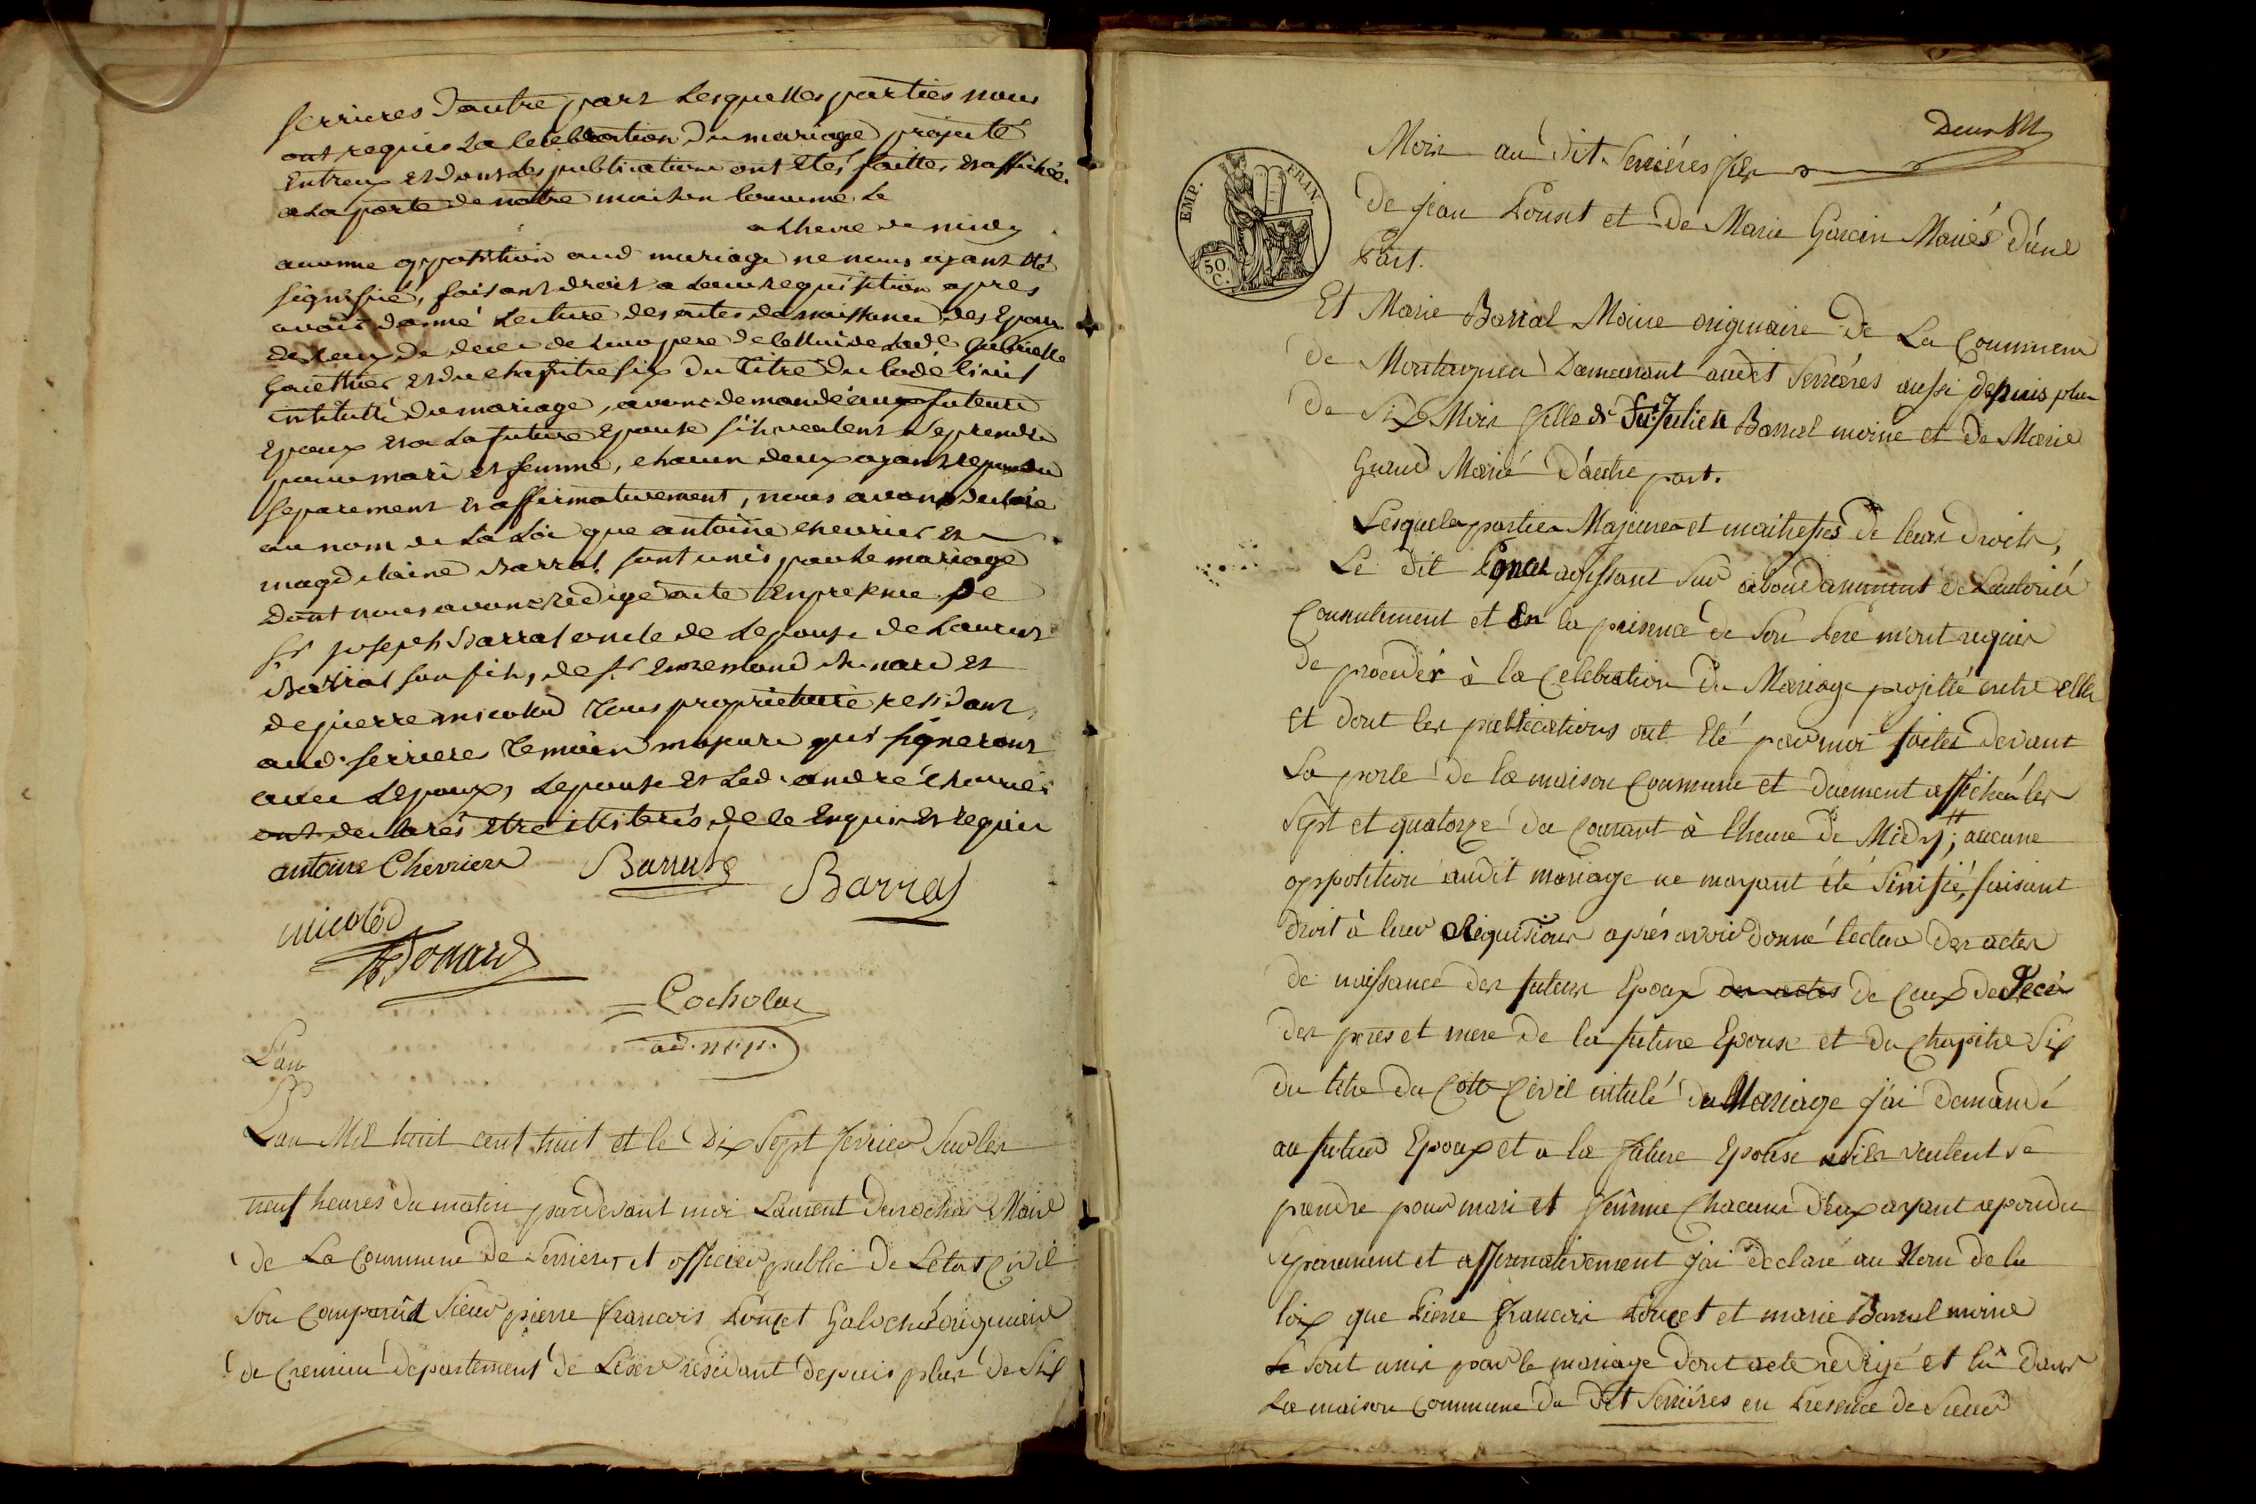 serrieres dautre part Lesquelles parties nous
ont requis La celebration du mariage projeté
Entreux et dont les publications ont étés faittes et affichée
a La porte de notre maison commune Le
a Lheure de midy
aucune opposition aud mariage ne nous ayant été
signifié, faisant droit a Leur requisition apres
avoir donné Lecture des actes de naissance des Epoux
de ceux de deces de
et du chapitre six du titre du code civil
intitulé du mariage, avons demandé aux futeurs
Epoux et a La future Epouse s'ils veulent se prendre
pour mari et femme, chacun deux ayant repondu
separement et affirmativement, nous avons declaré
au nom de La Loi que antoine chevrier et
magdelaine Barral sont unis par le mariage
Dont nous avons redigé acte En presence de
sr joseph Barral oncle de Lepouse de Laurent
Barral son fils, de sr
de pierre micoud Tous proprietaire residant
aud. serrieres Temoins majeurs qui signeront
avec Lepoux, Lepouse et Led. andré chevrier
ont declarés etre illiterés de ce Enquis et requis
antoine Chevrier Barral Barral
micoud
Donard
Cochola
ad. m. p.
L'an
L'an Mil huit cent huit et le Dix Sept fevrier Sur les
neuf heures du matin pardevant moi Laurent Maire
de La Commune de Serrieres et officier public de Letat Civil
Son Comparût Sieur pierre francois Louset originaire
de Cremieu departement de Lisere residant depuis plus de Six
Mois au dit Serriéres fils
De jean Louset et de Marie Garcin Mariés d'une
Part.
Et Marie Barral Moine originaire de La Commune
de Montagnieu Demeurant audit Serriéres aussi depuis plus
de Six Mois fille de Fu Julien Barral moine et de Marie
Guaud Marié D'autre part.
Lesquels parties Majeures et maitresses de leurs droits,
Le dit agissant Sur abondamment de Lautorité
Consentement et En la présence de Son Pere m'ont requis
de procéder à la Celebration du Mariage projetté entre elles
et dont les publications ont Eté par moi faites devant
La porte de la maison Commune et duement affichés les
Sept et quatorze du Courant à lheure de Midy; aucune
oppotition audit mariage ne mayant été Sinifié, faisant
droit à leur Requisition aprés avoir donné lecture des actes
de naissance des futeurs Epoux des actes de Ceux de Deces
des peres et mere de la future Epouse et du Chapitre Six
du titre du Code Civil intulé du Mariage j'ai demandé
au futur Epoux et a la future Epouse s'ils veulent se
prendre pour mari et femme Chacuns d'eux ayant repondu
Separement et affirmativement j'ai declaré au Nom de la
loix que Pierre francois Louset et marie Barral moine
Se Sont unis par le mariage dont acte redigé et lû dans
La maison Commune du Dit Serriéres en Presence de Sieur
EMP. FRAN.
50
C.